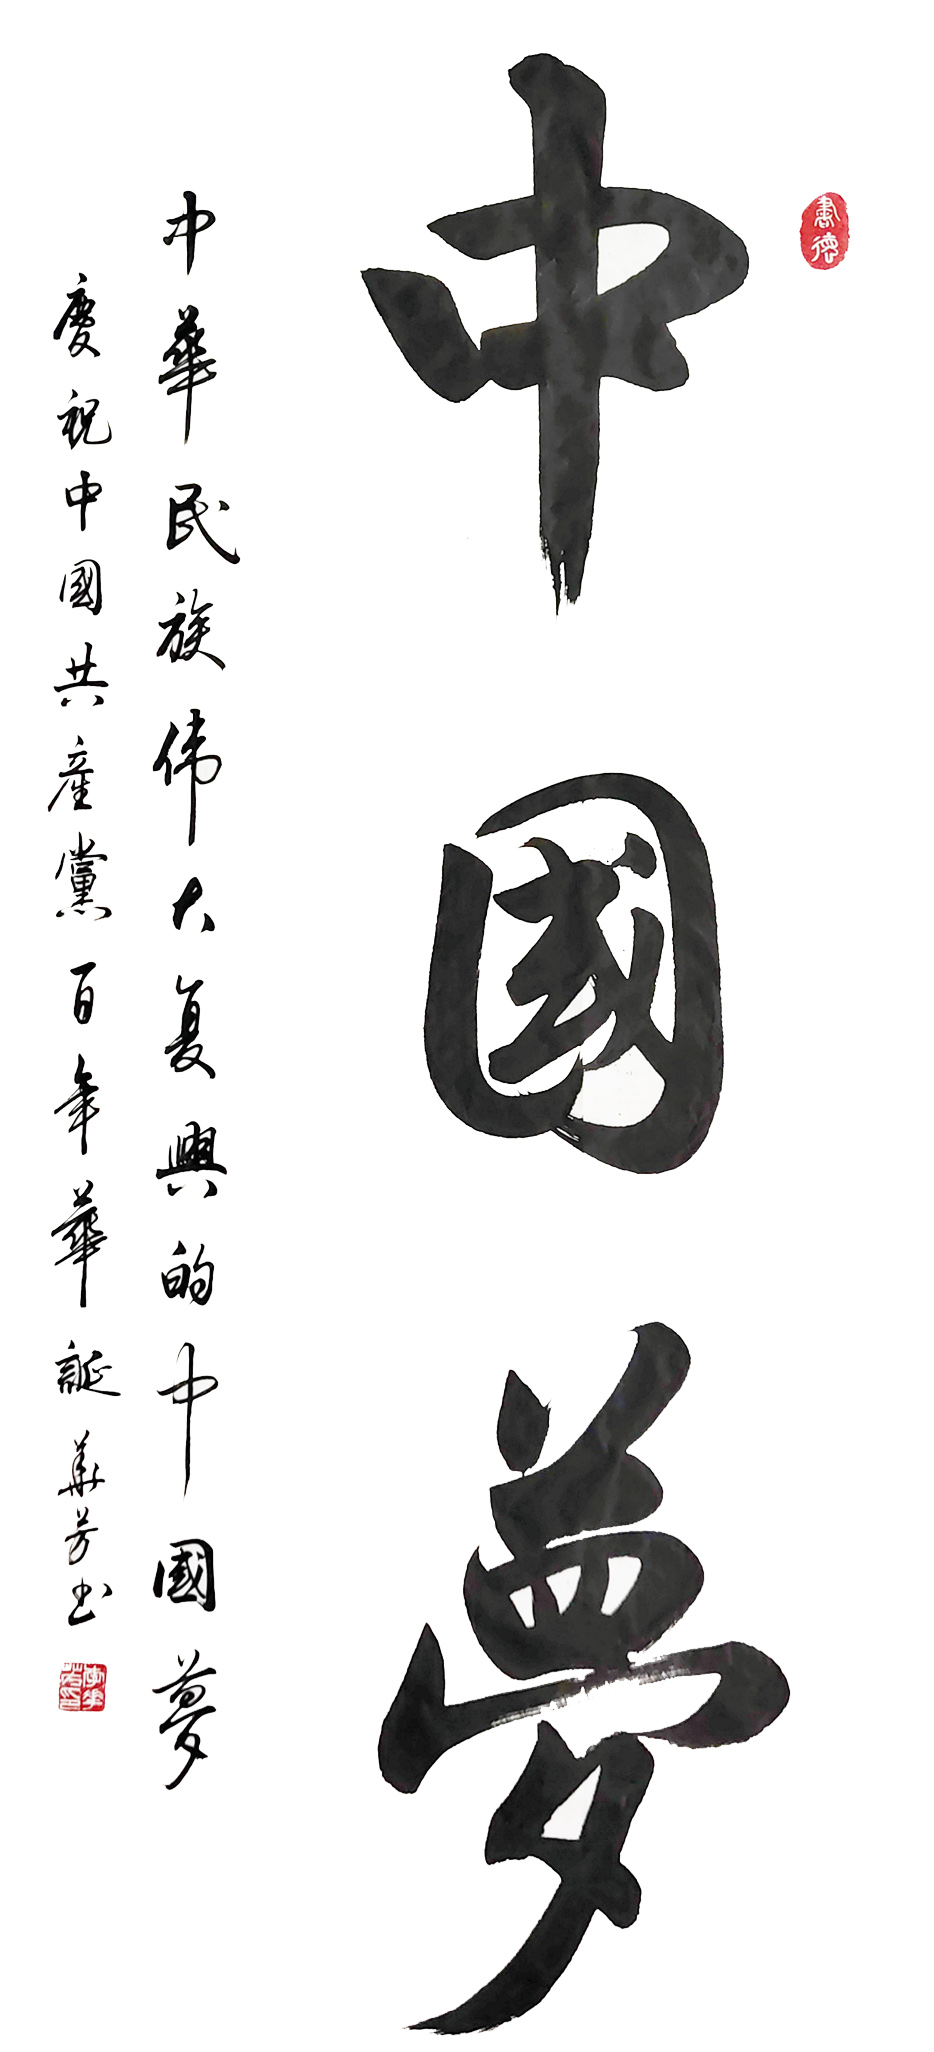 中國夢
書德
中華民族伟大复興的中國夢
慶祝中國共產黨百年華誕 華芳书